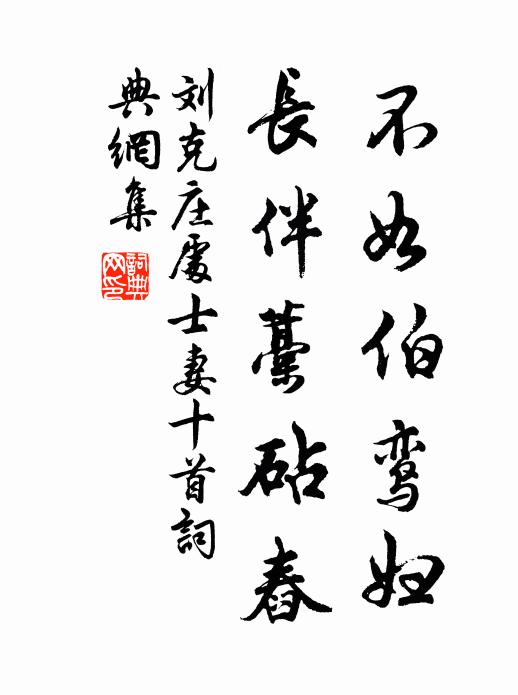 不如伯鸾妇
長伴藁砧舂
刘克庄處士妻十首詞
典網集
詞典网印